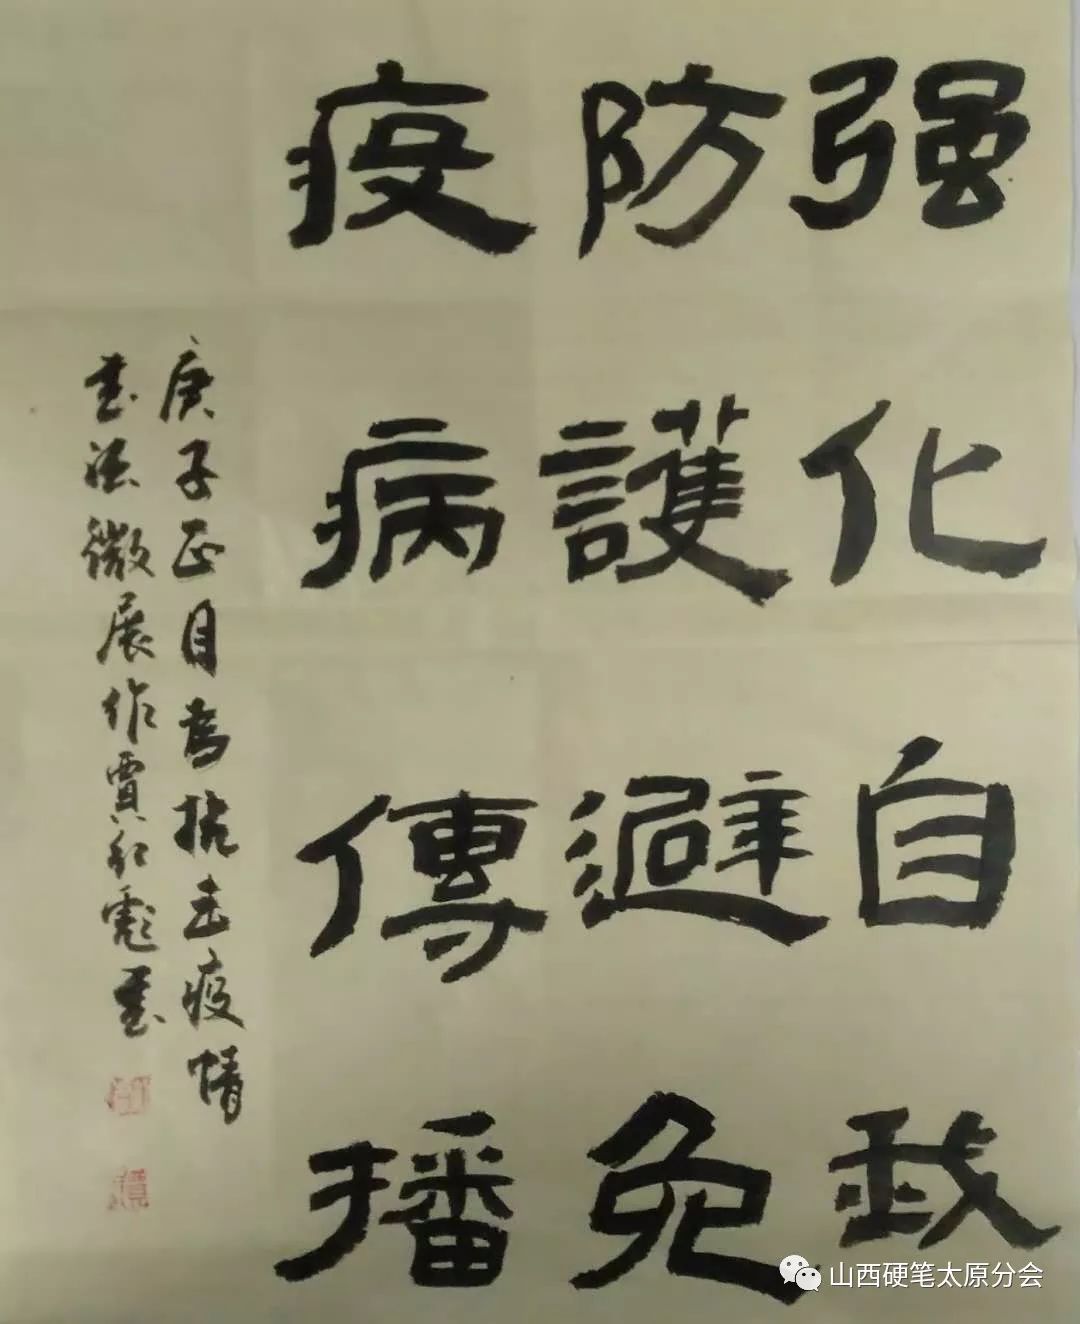 强化自我
防護避免
疫病傳播
庚子正月為抗击疫情
书法微展作賈红彪书
山西硬笔太原分会